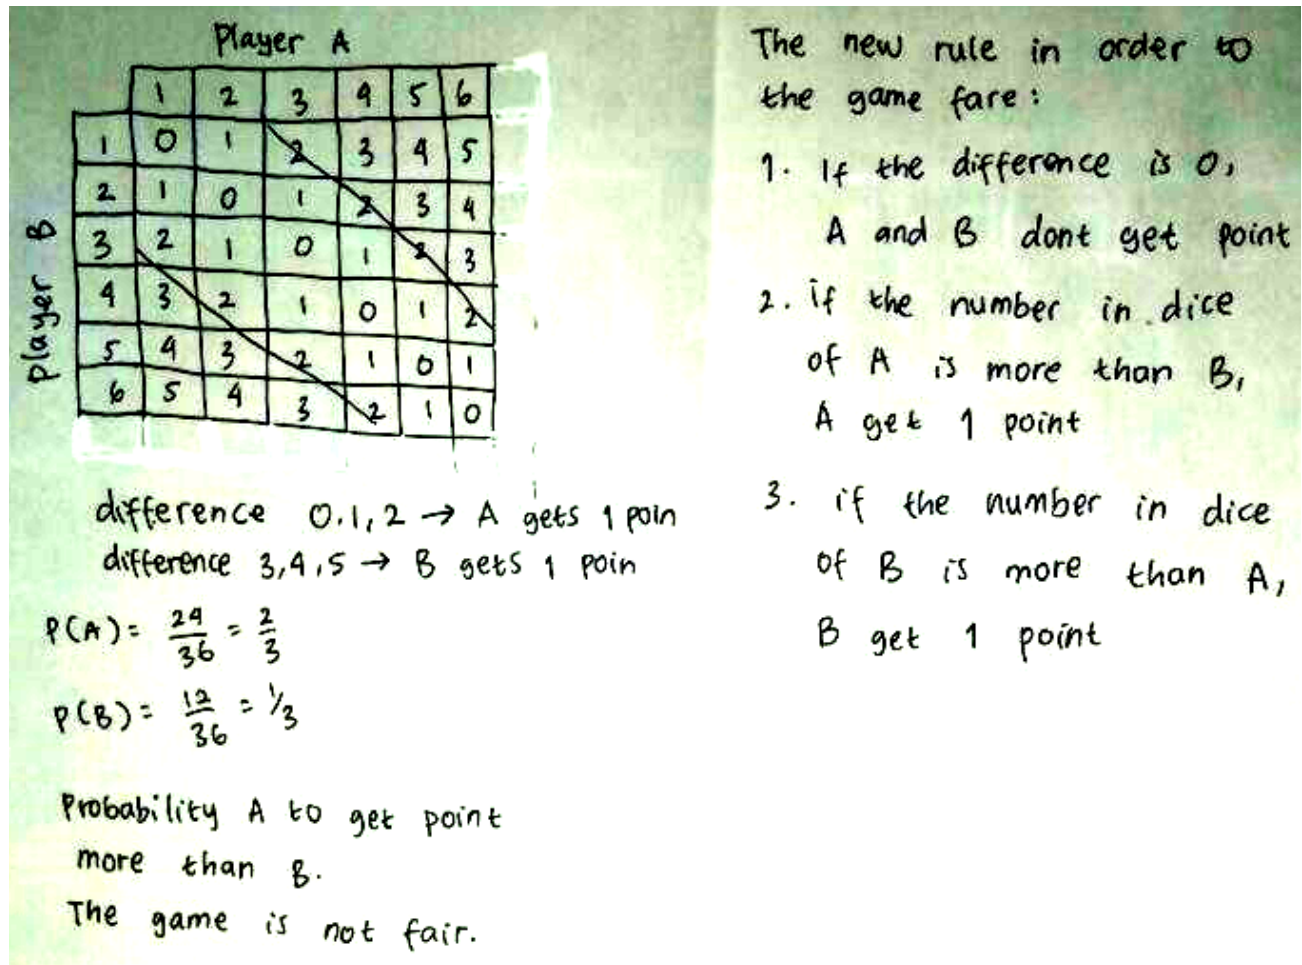 Player A
1 2 3 4 5 6
Player B
1 0 1 2 3 4 5
2 1 0 1 2 3 4
3 2 1 0 1 2 3
4 3 2 1 0 1 2
5 4 3 2 1 0 1
6 5 4 3 2 1 0
difference 0.1,2 → A gets 1 poin
difference 3,4,5 → B gets 1 poin
P(A) = 24/36 = 2/3
P(B) = 12/36 = 1/3
Probability A to get point
more than B.
The game is not fair.
The new rule in order to
the game fare :
1. If the difference is 0,
A and B dont get point
2. if the number in dice
of A is more than B,
A get 1 point
3. if the number in dice
of B is more than A,
B get 1 point